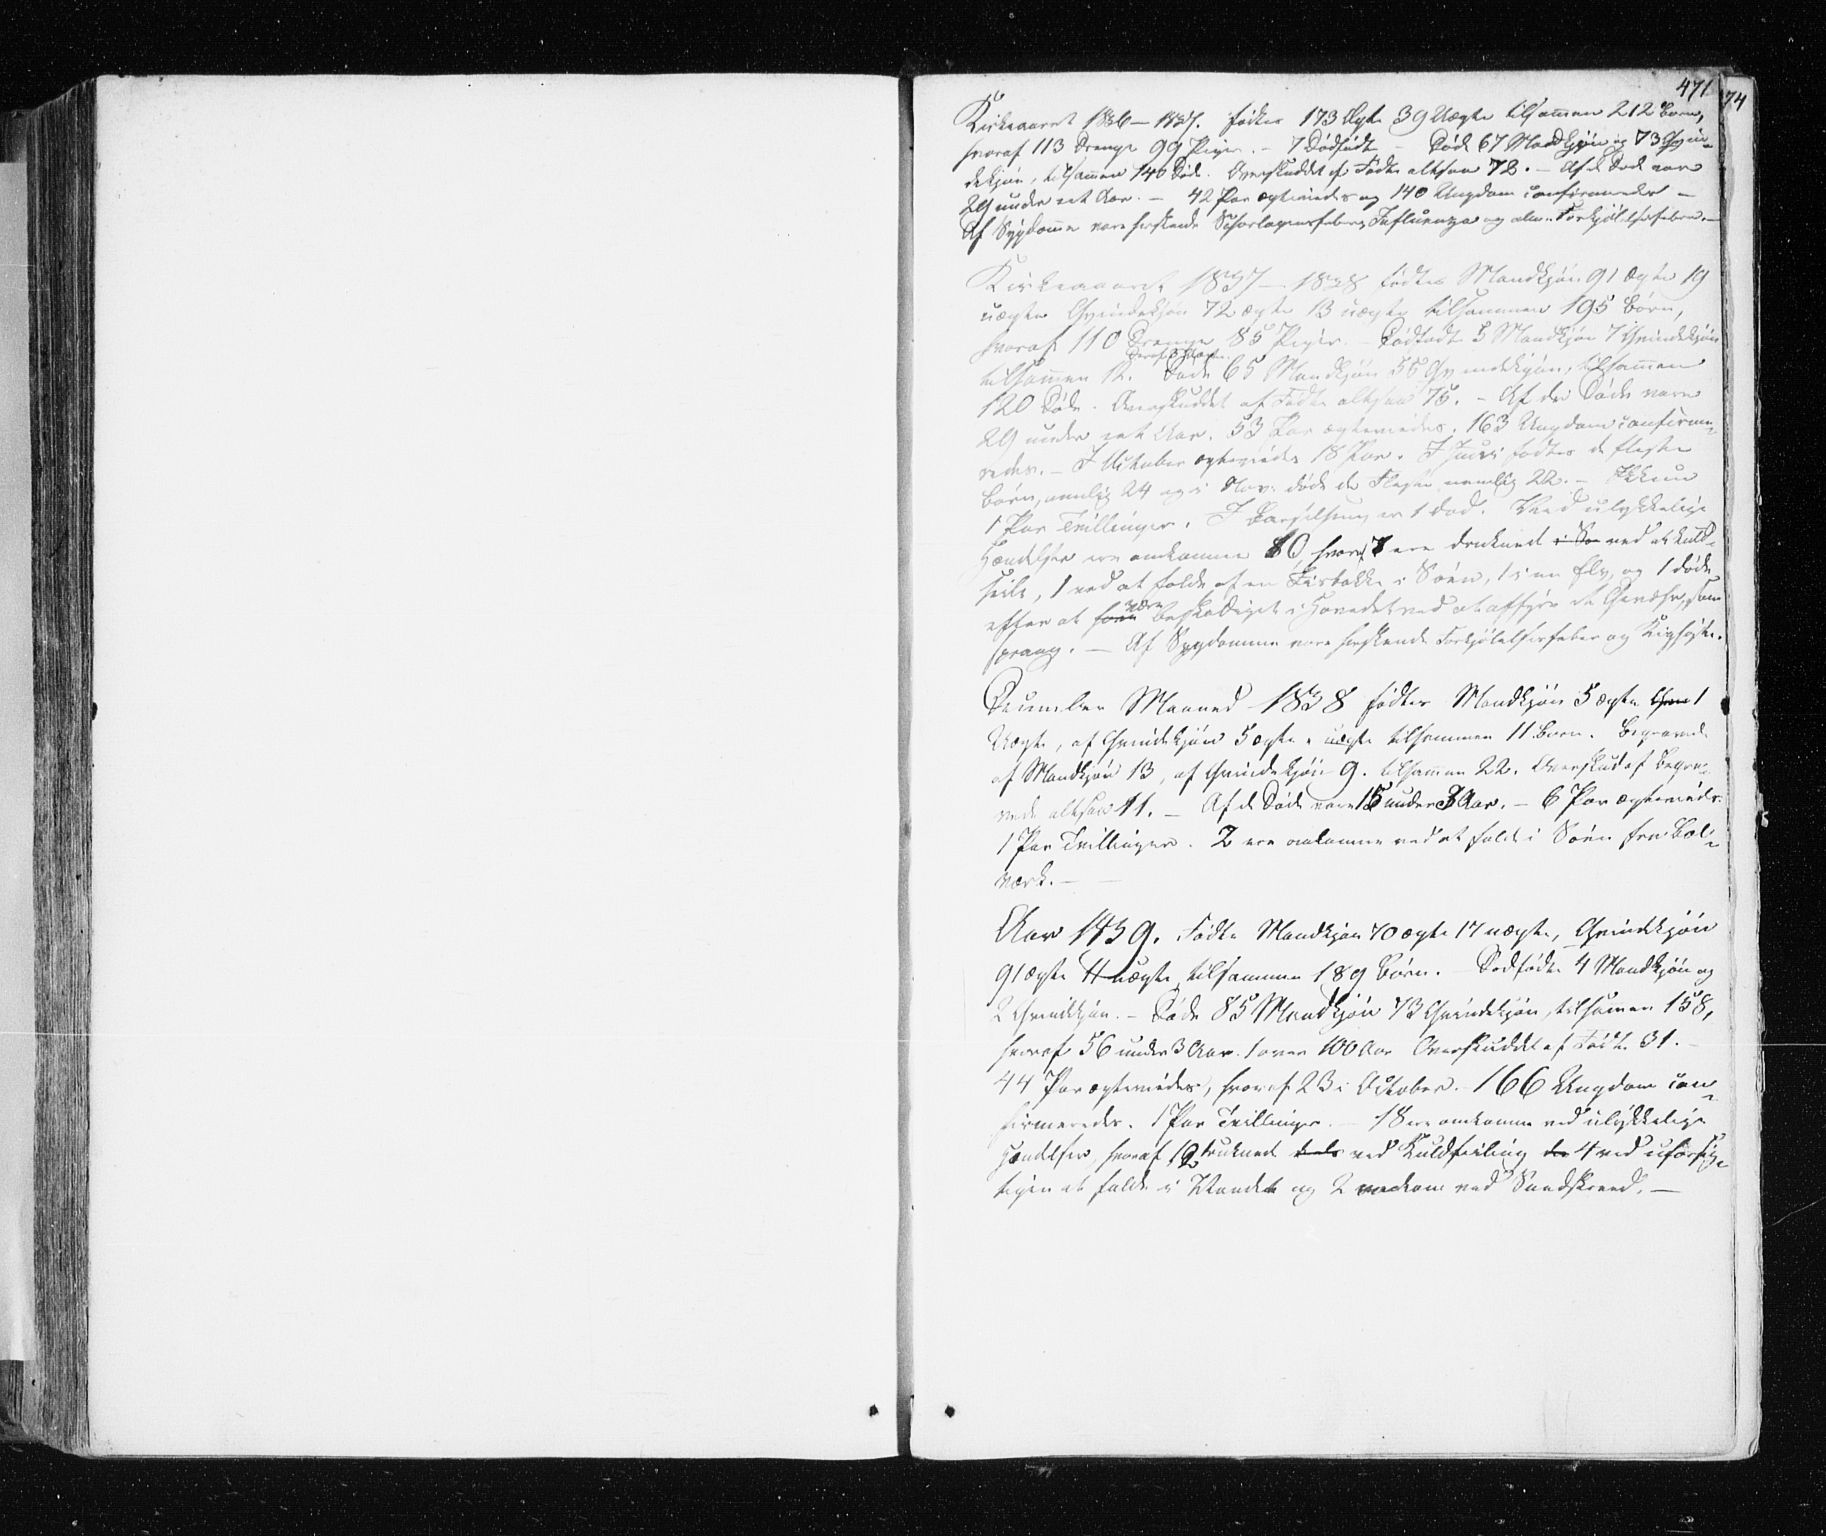 471
74
Kirkeaaret 1836–1837. fødtes 173 Ægte 39 Uægte tilsammen 212 Børn,
hvoraf 113 Drenge 99 Piger. – 7 Dødfødte – Døde 67 Mandkjøn og 73 Qvin-
dekjøn, tilsammen 140 Døde. Overskuddet af Fødte altsaa 72. – Af de Døde vare
29 under eet Aar. – 42 Par ægteviedes og 140 Ungdom confirmeredes –
Af Sygdomme vare herskende Skarlagensfeber, Influenza og alm. Forkjølelsesfeber. –
Kirkeaaret 1837–1838 fødtes Mandkjøn 91 ægte 19
uægte Qvindekjøn 72 ægte 13 uægte tilsammen 195 Børn,
hvoraf 110 Drenge 85 Piger. – Dødfødt 5 Mandkjøn 7 Qvindekjøn
tilsammen 12. Døde 65 Mandkjøn 55 Qvindekjøn, tilsammen
120 Døde. Overskuddet af Fødte altsaa 75. – Af de Døde vare
29 under eet Aar. 53 Par ægteviedes. 163 Ungdom confirme-
redes. – I October ægteviedes 18 Par. I Juni fødtes de fleste
Børn, nemlig 24 og i Nov. døde de Fleste nemlig 22. –
1 Par Tvillinger. I Barselseng er 1 død. Ved ulykkelige
Hændelser ere omkomne 10, hvoraf 7 ere druknede i Søe ved at kuld-
seile, 1 ved at falde af en i Søen, 1 i en Elv, og 1 døde
efter at være beskadiget i Hovedet ved at affyre et Gevær, som
sprang. – Af Sygdomme vare herskende Forkjølelsesfeber og Kighoste.
December Maaned 1838 fødtes Mandkjøn 5 ægte 1
Uægte, af Qvindekjøn 5 ægte " uægte tilsammen 11 Børn. Begravede
af Mandkjøn 13, af Qvindekjøn 9. tilsammen 22. Overskud af Begra-
vede altsaa 11. – Af de Døde vare 15 under 3 Aar. – 6 Par ægteviedes.
1 Par Tvillinger. 2 ere omkomne ved at falde i Søen fra Bol-
værk. –
Aar 1839. Fødte Mandkjøn 70 ægte 17 uægte, Qvindekjøn
91 ægte 11 uægte, tilsammen 189 Børn. – Dødfødte 4 Mandkjøn og
2 Qvindekjøn. – Døde 85 Mandkjøn 73 Qvindekjøn, tilsammen 158,
hvoraf 56 under 3 Aar. 1 over 100 Aar Overskuddet af Fødte 31. –
44 Par ægteviedes, hvoraf 23 i October. – 166 Ungdom con-
firmeredes. 1 Par Tvillinger. – 18 ere omkomne ved ulykkelige
Hændelser, hvoraf 12 druknede ved Kuldseiling 4 ved uforsig-
tigen at falde i Vandet og 2 ved Sandskreed. –